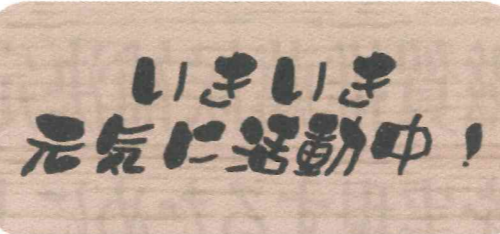 いきいき
元気に活動中！